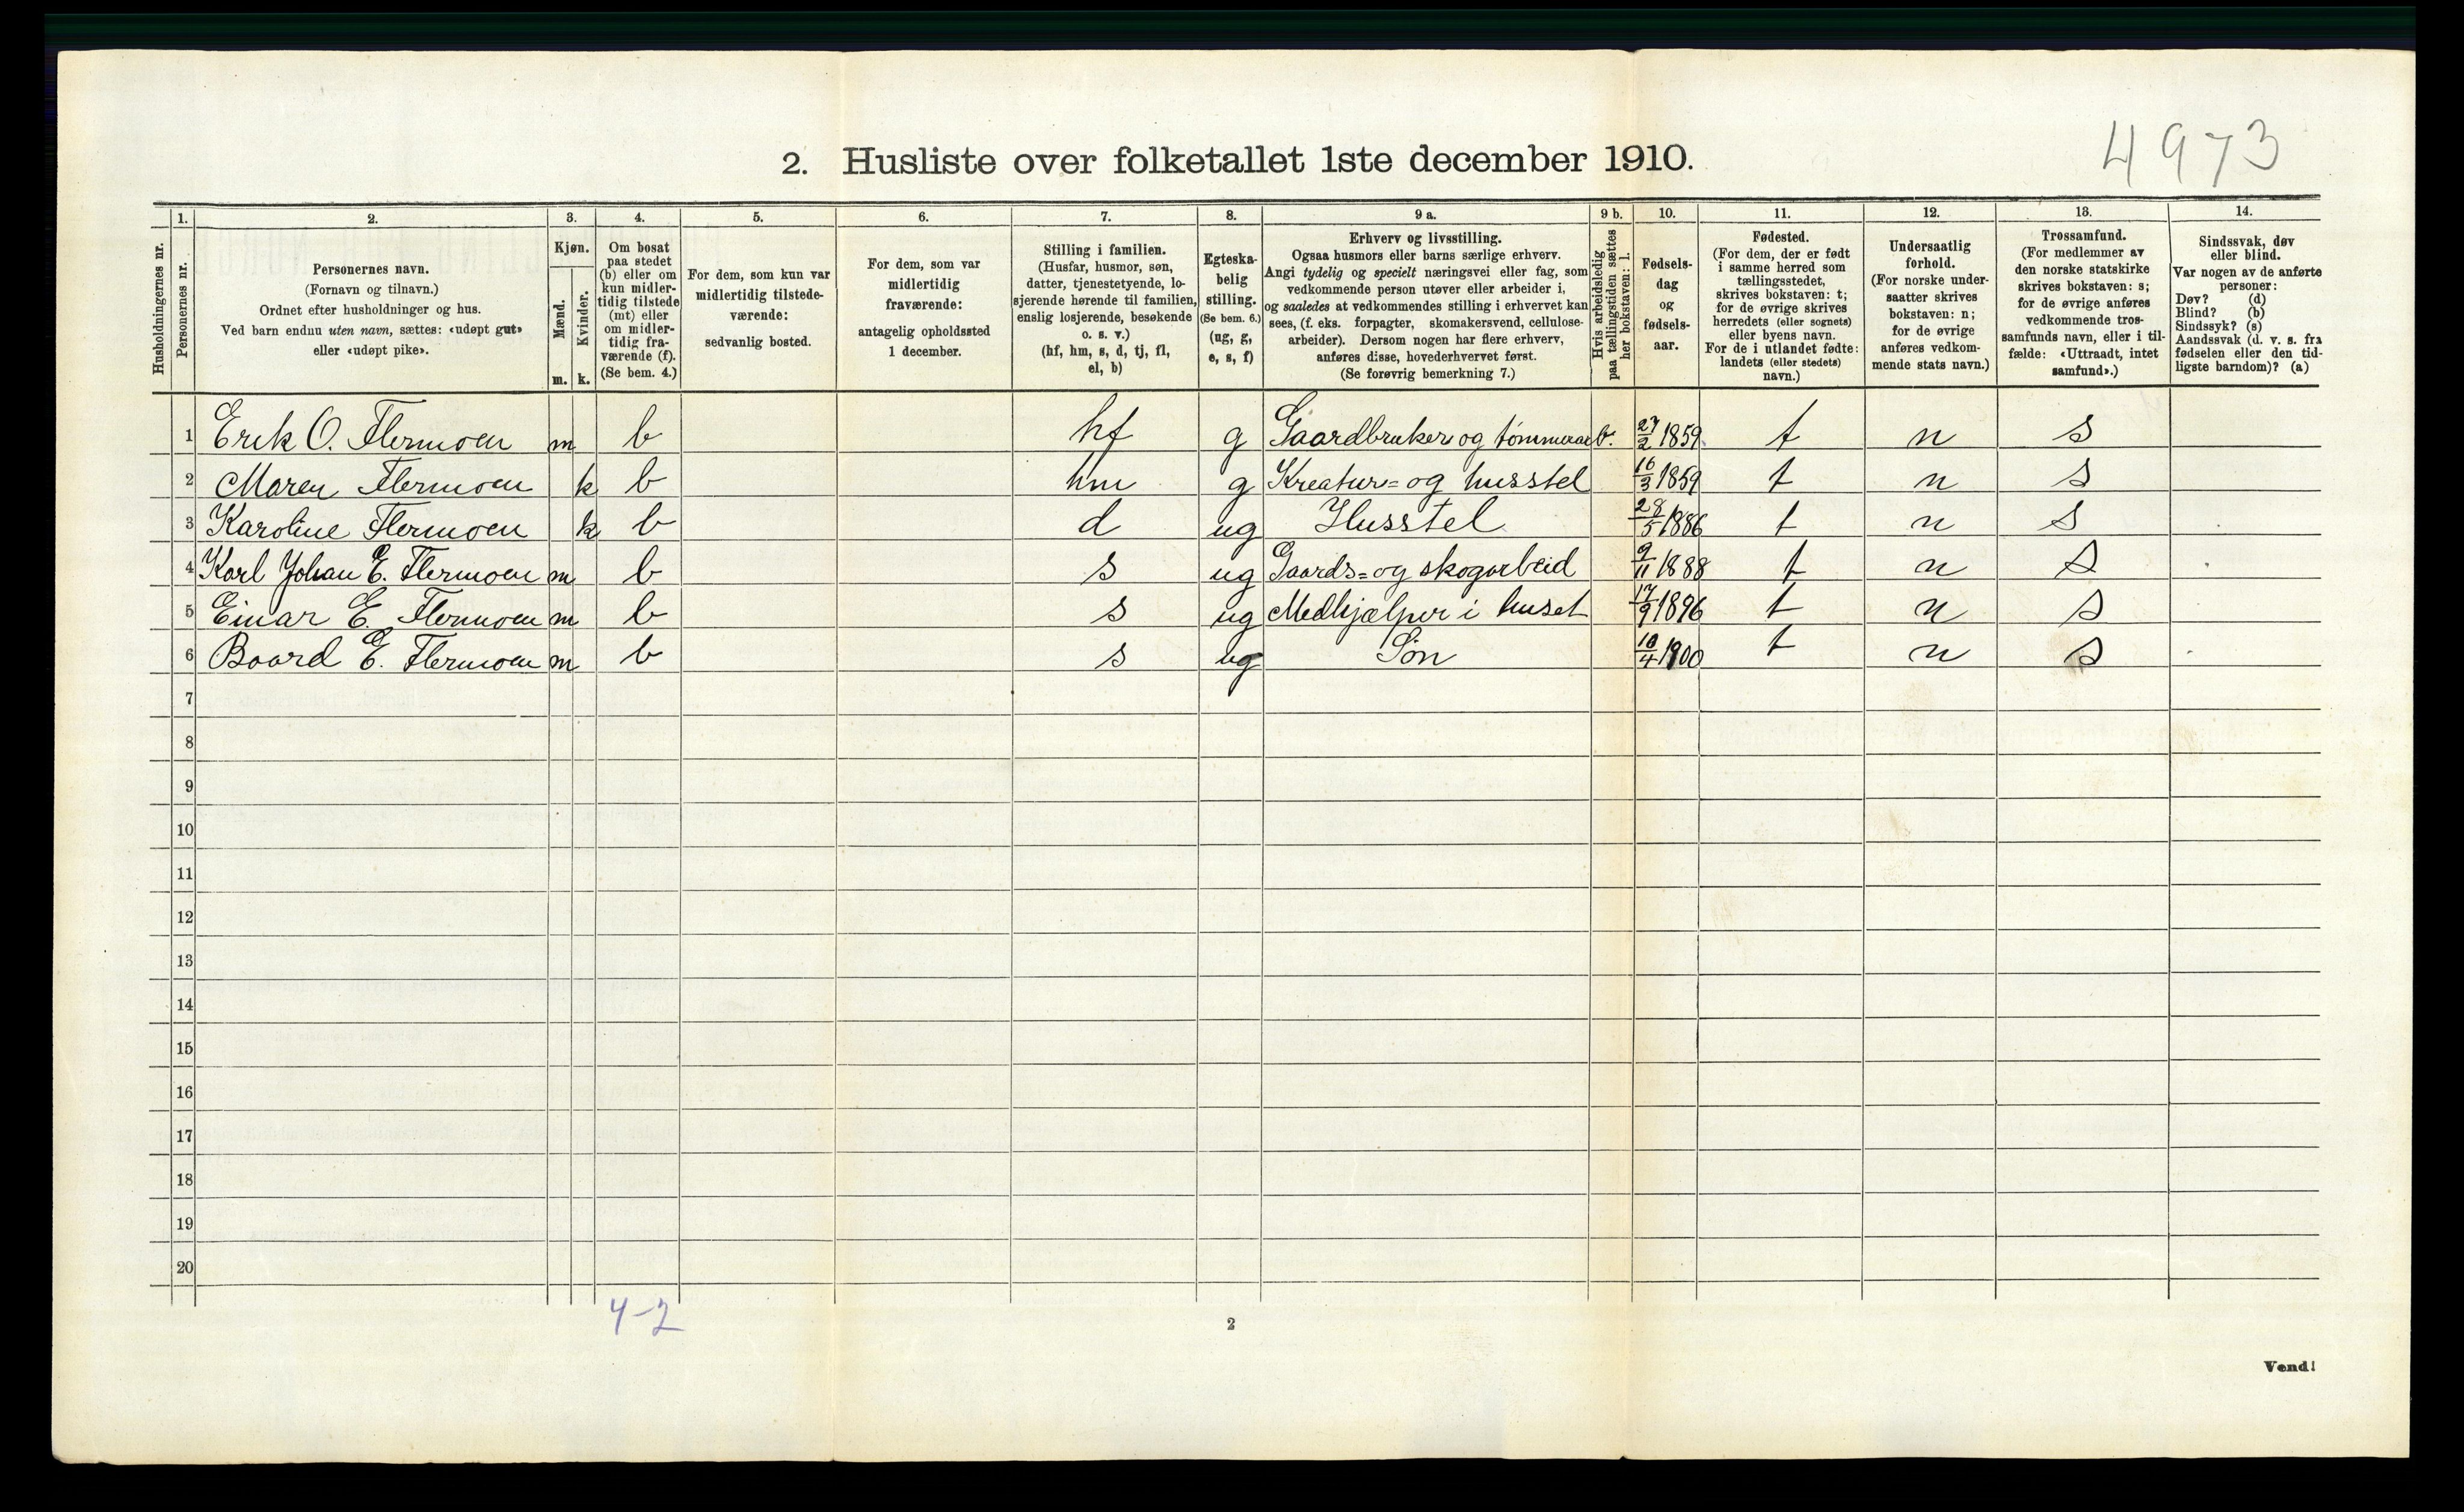 4973
2. Husliste over folketallet 1ste december 1910.
Husholdningernes nr.
1.
Personernes nr.
2.
Personernes navn.
(Fornavn og tilnavn.)
Ordnet efter husholdninger og hus.
Ved barn endnu uten navn, sættes: «udøpt gut»
eller «udøpt pike».
3.
Kjøn.
Mænd.
Kvinder.
m. k.
4.
Om bosat
paa stedet
(b) eller om
kun midler-
tidig tilstede
(mt) eller
om midler-
tidig fra-
værende (f).
(Se bem. 4.)
5.
For dem, som kun var
midlertidig tilstede-
værende:
sedvanlig bosted.
6.
For dem, som var
midlertidig
fraværende:
antagelig opholdssted
1 december.
7.
Stilling i familien.
(Husfar, husmor, søn,
datter, tjenestetyende, lo-
sjerende hørende til familien,
enslig losjerende, besøkende
o. s. v.)
(hf, hm, s, d, tj, fl,
el, b)
8.
Egteska-
belig
stilling.
(Se bem. 6.)
(ug, g,
e, s, f)
9 a.
Erhverv og livsstilling.
Ogsaa husmors eller barns særlige erhverv.
Angi tydelig og specielt næringsvei eller fag, som
vedkommende person utøver eller arbeider i,
og saaledes at vedkommendes stilling i erhvervet kan
sees, (f. eks. forpagter, skomakersvend, cellulose-
arbeider). Dersom nogen har flere erhverv,
anføres disse, hovederhvervet først.
(Se forøvrig bemerkning 7.)
9 b.
Hvis arbeidsledig
paa tællingstiden sættes
her bokstaven: l.
10.
Fødsels-
dag
og
fødsels-
aar.
11.
Fødested.
(For dem, der er født
i samme herred som
tællingsstedet,
skrives bokstaven: t;
for de øvrige skrives
herredets (eller sognets)
eller byens navn.
For de i utlandet fødte:
landets (eller stedets)
navn.)
12.
Undersaatlig
forhold.
(For norske under-
saatter skrives
bokstaven: n;
for de øvrige
anføres vedkom-
mende stats navn.)
13.
Trossamfund.
(For medlemmer av
den norske statskirke
skrives bokstaven: s;
for de øvrige anføres
vedkommende tros-
samfunds navn, eller i til-
fælde: «Uttraadt, intet
samfund».)
14.
Sindssvak, døv
eller blind.
Var nogen av de anførte
personer:
Døv? (d)
Blind? (b)
Sindssyk? (s)
Aandssvak (d. v. s. fra
fødselen eller den tid-
ligste barndom)? (a)
1 Erik O. Flermoen m b hf g Gaardbruker og tømmerarb. 27/2 1859 t n s
2 Maren Flermoen k b hm g Kreatur= og husstel 16/3 1859 t n s
3 Karoline Flermoen k b d ug Husstel 28/5 1886 t n s
4 Karl Johan E. Flermoen m b s ug Gaards= og skogarbeid 9/11 1888 t n s
5 Einar E. Flermoen m b s ug Medhjælper i huset 17/9 1896 t n s
6 Baard E. Flermoen m b s ug Søn 10/4 1900 t n s
7
8
9
10
11
12
13
14
15
16
17
18
19
20
4-2
2
Vend!